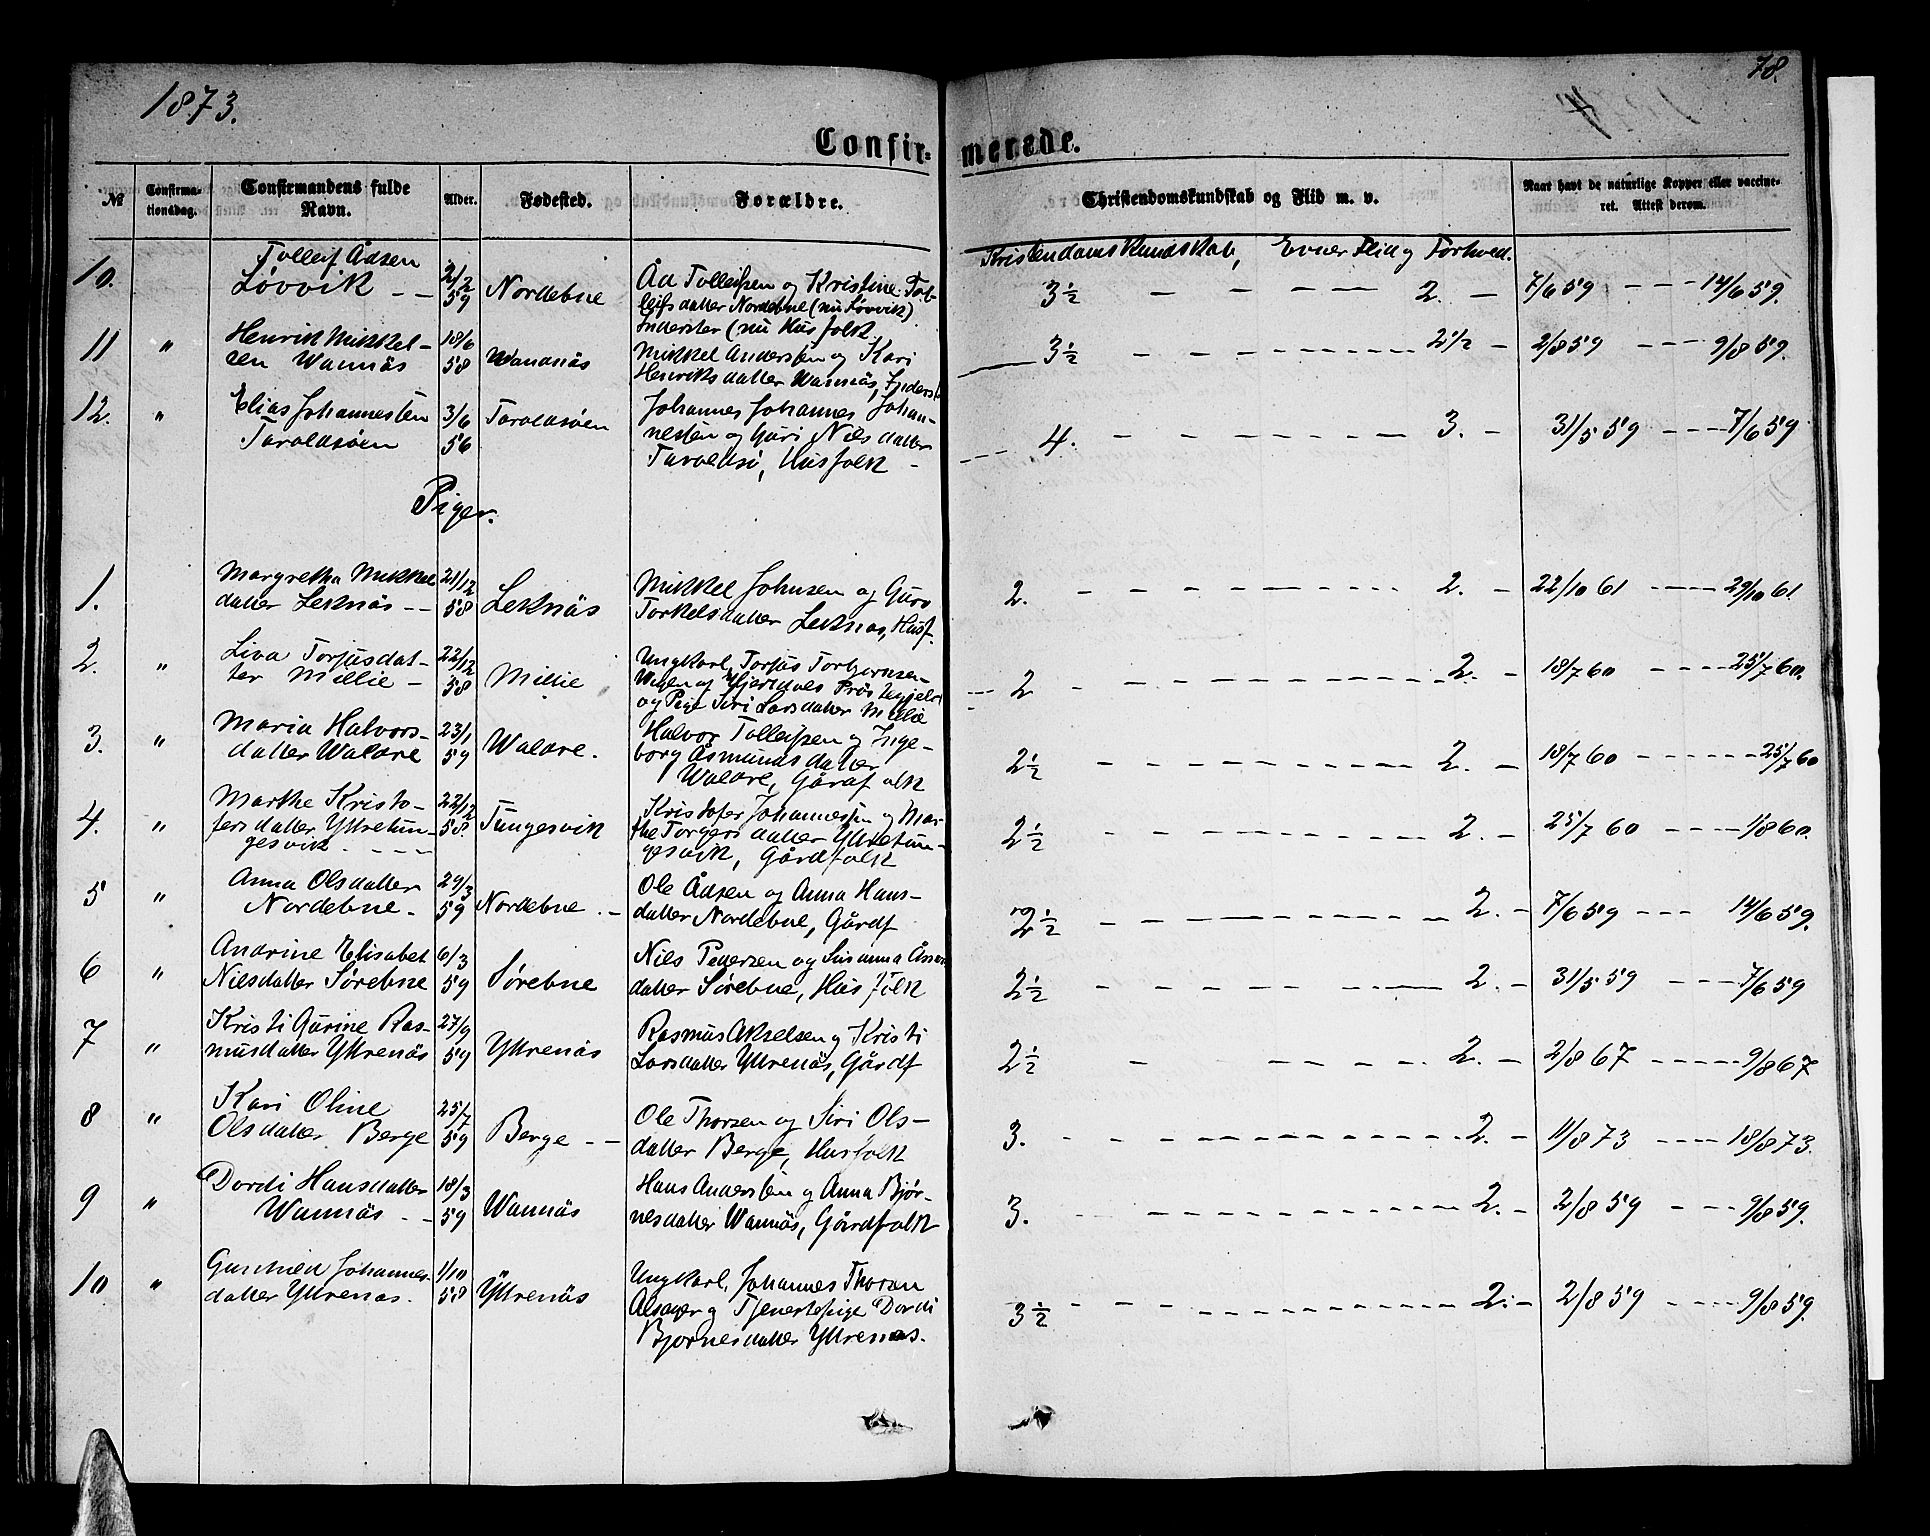 1873.
78.
Confir- merede.
№
Confirmationsdag.
Confirmandens fulde Navn.
Alder.
Fødested.
Forældre.
Christendomskundskab og Flid m. v.
Naar havt de naturlige Kopper eller vaccineret. Attest derom.
Kristendomskundskab, Evner Flid og Forhold.
10. Tolleif Ådsen
Løvvik - - 2/2 59 Nordebne
Åd Tolleifsen og Kristine Tol-
leifsdatter Nordebne (nu Løvvik)
Inderster (nu Husfolk
3½ - - - - - 2. - 7/6 59 - - - 14/6 59.
11 " Henrik Mikkel-
sen Wannäs 18/6 58 Wandnäs
Mikkel Andersen og Kari
Henriksdatter Wannäs, Inderst
3½ - - - - 2½ - 2/8 59 - - - 9/8 59.
12. " Elias Johannessen
Taroldsøen 3/6 56 Taroldsøen
Johannes Johannes Johan-
nessen og Guri Nielsdatter
Taroldsø, Husfolk -
4. - - - - 3. - 31/5 59 - - - 7/6 59
Piger.
1. Margretha Mikkels
datter Leknäs - - 21/12 58 Leknäs
Mikkel Johnsen og Guro
Torkelsdatter Leknäs, Husf.
2. - - - - 2. - 22/10 61 - - - 29/10 61.
2. " Liva Torjusdat-
ter Millie - 22/12 58 Millie
Ungkarl Torjus Torbjornsen
og Hjertdals Prästegjeld
og Pige Siri Larsdatter Millie
2 - - - - 2. - 18/7 60 - - - 25/7 60.
3. " Maria Halvors-
datter Waldre 23/1 59 Waldre.
Halvor Tolleifsen og Inge-
borg Åsmundsdatter
Waldre, Gårdfolk
2½ - - - - 2. - 18/7 60 - - - 25/7 60
4. " Marthe Kristo-
fersdatter Yttretun-
gesvik. - - - 22/12 58. Tungesvik
Kristofer Johannessen og Mar-
the Torgersdatter Yttretun-
gesvik, Gårdfolk
2½ - - - - 2. - 25/7 60 - - - 1/8 60.
5 " Anna Olsdatter
Nordebne. 29/3 59 Nordebne. -
Ole Ådsen og Anna Hans-
datter Nordebne, Gårdf
2½ - - - - 2. - 7/6 59 - - - 14/6 59.
6 " Andrine Elisabet
Nielsdatter Sørebne 6/3 59 Sørebne
Niels Pedersen og Susanna
datter Sørebne, Husfolk
2½ - - - - 2. - 31/5 59 - - - 7/6 59
7 " Kristi Gurine Ras-
musdatter Yttrenäs 27/9 59 Yttrenäs
Rasmus Akselsen og Kristi
Larsdatter Yttrenäs, Gårdf
2½ - - - - 2. - 2/8 67 - - - 9/8 67
8 " Kari Oline
Olsdatter Berge 25/7 59 Berge - -
Ole Thorsen og Siri Ols-
datter Berge, Husfolk
3. - - - - 2. - 11/8 73 - - - 18/8 73.
9 " Dordi Hansdatter
Wannäs - - 18/3 59 Wannäs
Hans Andersen og Anna Bjør-
nesdatter Wannäs, Gårdfolk
3. - - - - 2. - 2/8 59 - - - 9/8 59.
10 " Gunhild Johannes-
datter Yttrenäs. 1/10 58 Yttrenäs
Ungkarl, Johannes Thorsen
og Tjenestepige Dordi
Bjornesdatter Yttrenäs.
3½ - - - - 2. - 2/8 59 - - - 9/8 59.